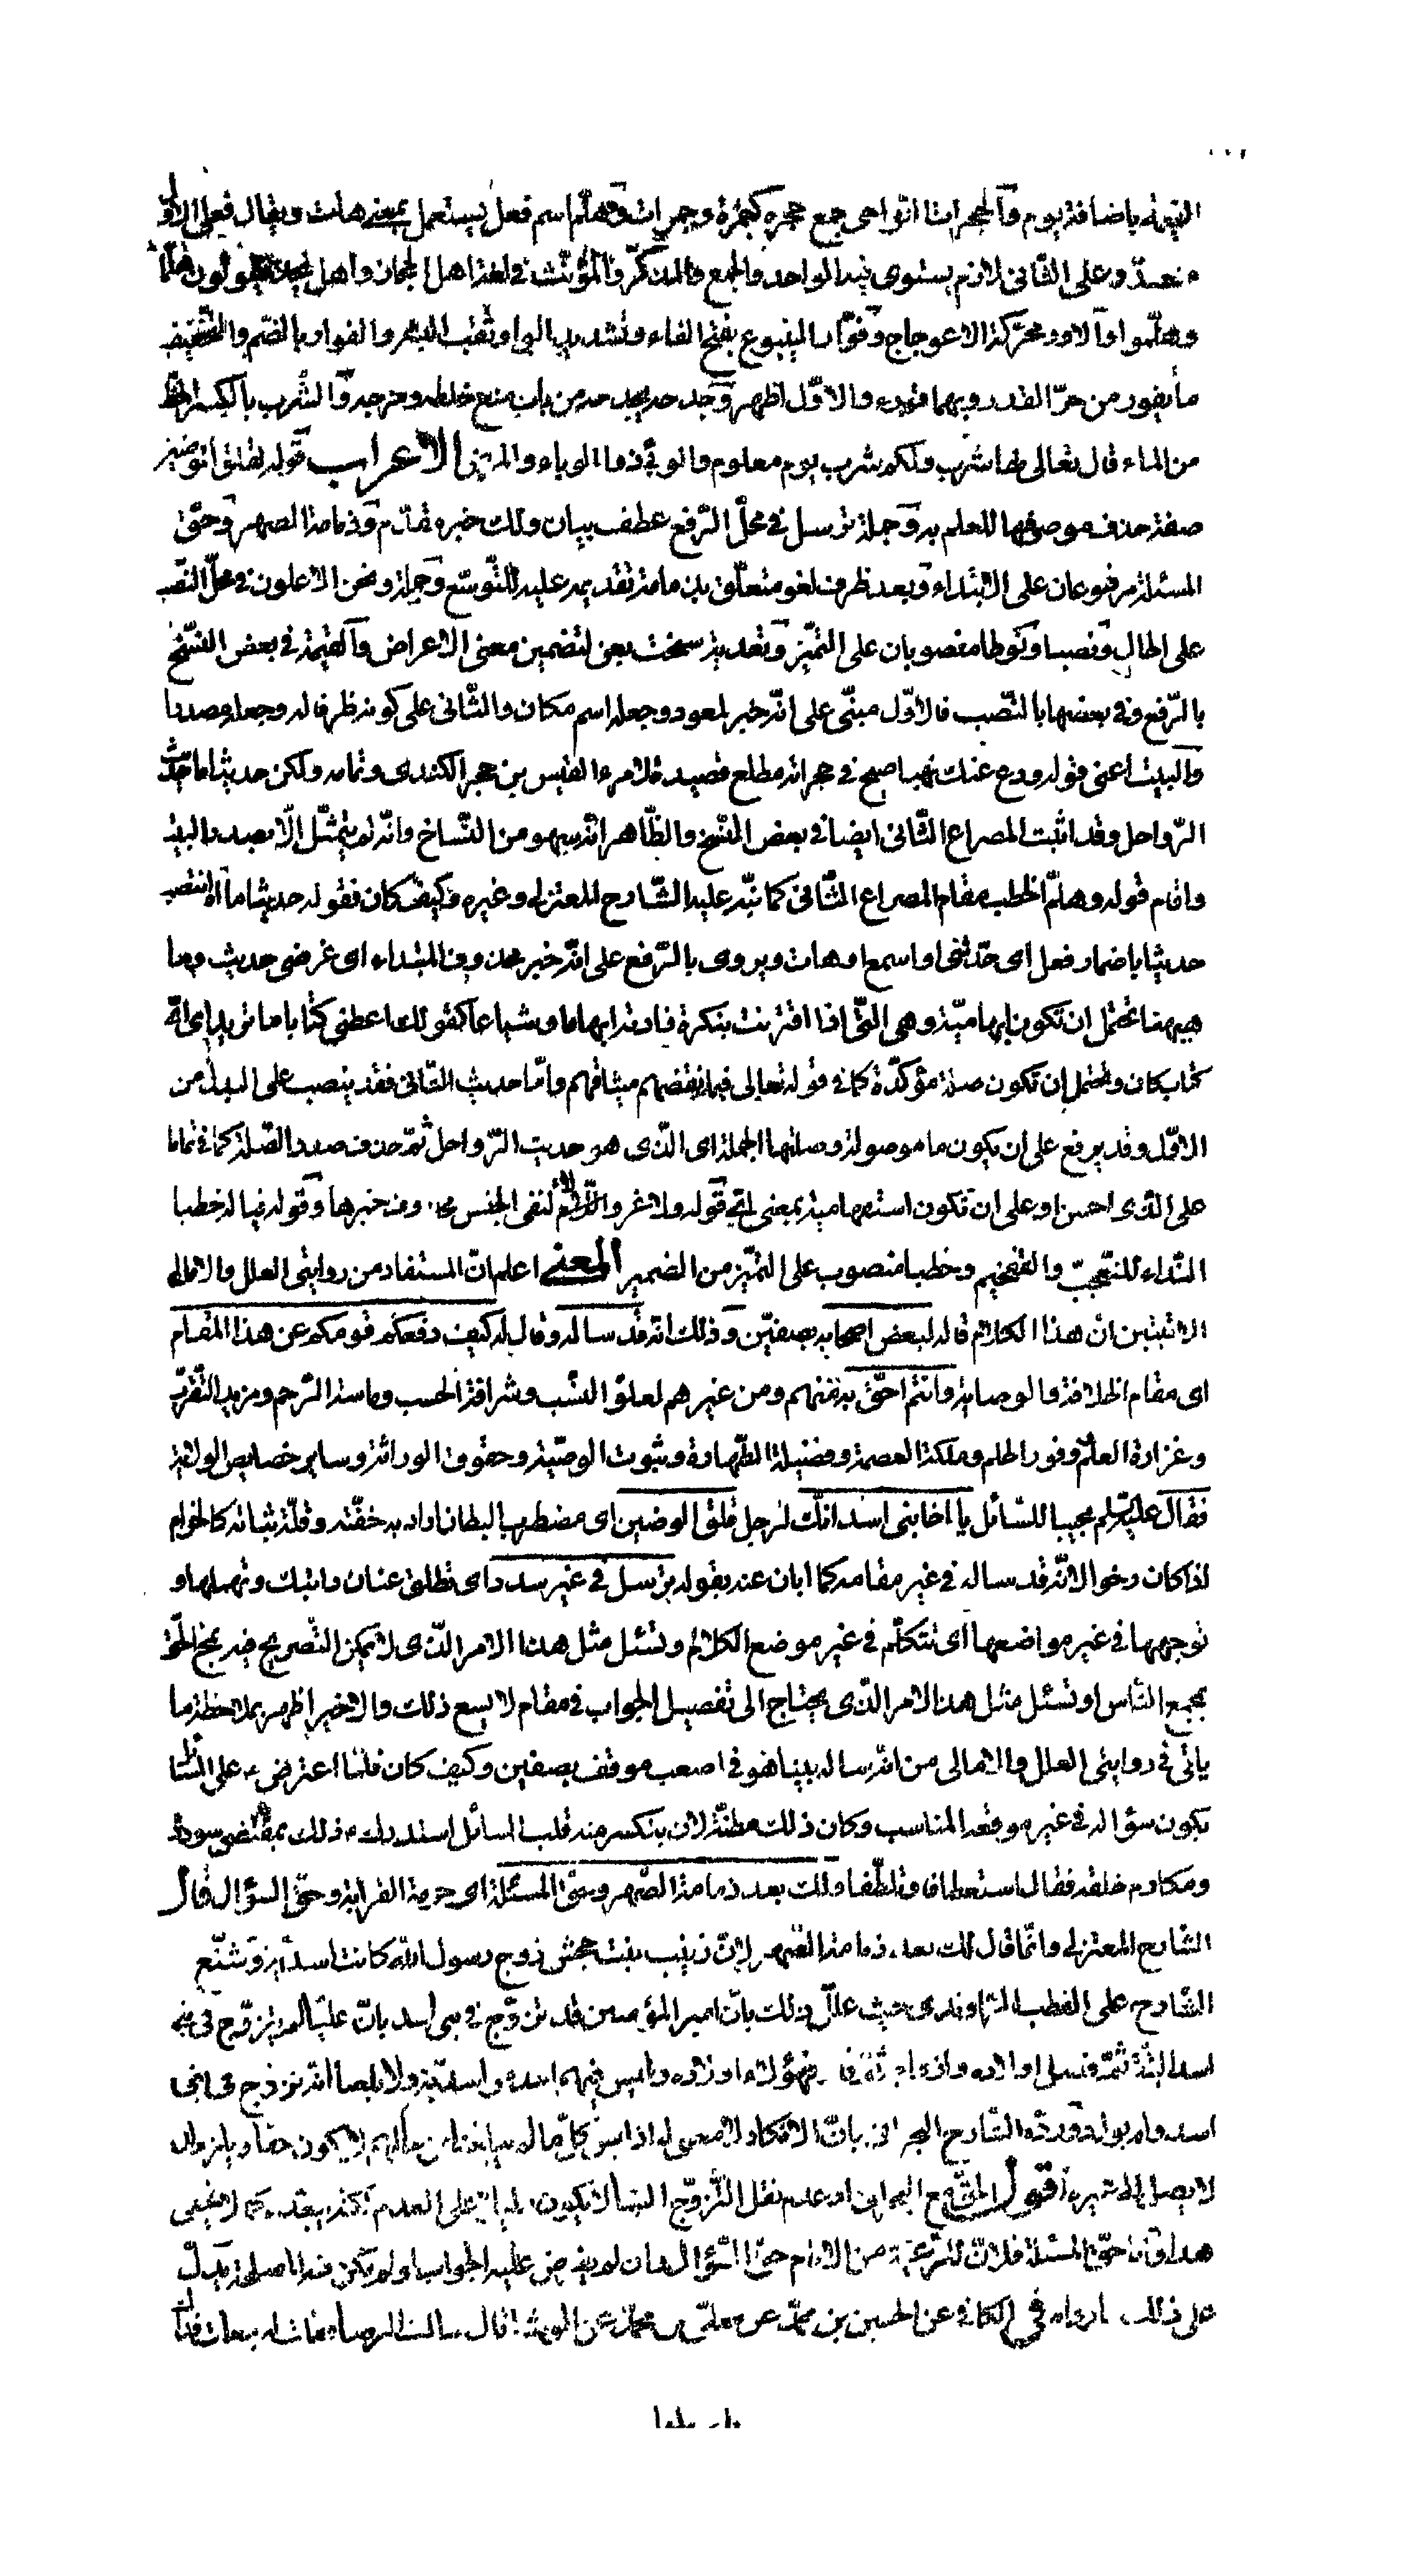 القيمة باضافة يوم والحجرات النواحي جمع حجرة كجمرة وجمرات وهلم اسم فعل يستعمل بمعنى هات وتعال فعلى الاول
متعد وعلى الثاني لازم يستوى فيه الواحد والجمع والمذكر والمؤنث في لغة اهل الحجاز واهل نجد يقولون هلما
وهلموا والاود محركة الاعوجاج وفوار الينبوع بفتح الفاء وتشديد الواو ثقب البئر والفوار بالضم والتخفيف
ما يفور من حر القدر وبهما قرىء والاول اظهر وجدح يجدح من باب منع خلطه ومزجه والشرب بالكسر الحظ
من الماء قال تعالى لها شرب ولكم شرب يوم معلوم والوبيء ذو الوباء والمرض الاعراب قوله لقلق الوضين
صفة حذف موصوفها للعلم به وجملة ترسل في محل الرفع عطف بيان ولك خبر مقدم وذمامة الصهر وحق
المسئلة مرفوعان على الابتداء وبعد ظرف لغو متعلق بذمامة تقديمه عليه للتوسع وجملة ونحن الاعلون في محل النصب
على الحال ونسبا ونوطا منصوبان على التميز وتعدية سخت بعن لتضمين معنى الاعراض والقيمة في بعض النسخ
بالرفع وفي بعضها بالنصب فالاول مبني على انه خبر لمعود وجعله اسم مكان والثاني على كونه ظرفا له وجعله مصدرا
والبيت اعنى قوله ودع عنك نهبا صيح في حجراته مطلع قصيدة لامرء القيس بن حجر الكندى وتمامه ولكن حديثا ما حديث
الرواحل وقد اثبت المصراع الثاني ايضا في بعض النسخ والظاهر انه سهو من النساخ وانه لم يتمثل الا بصدر البيت
واقام قوله وهلم الخطب مقام المصراع الثاني كما نبه عليه الشارح المعتزلي وغيره وكيف كان فقوله حديثا ما انتصب
حديثا باضمار فعل اى حدثنى او اسمع او هات ويروى بالرفع على انه خبر محذوف المبتداء اى غرضى حديث وما
هيهنا تحتمل ان تكون ابهامية وهى التى اذا اقترنت بنكرة زادته ابهاما وشياعا كقولك اعطنى كتابا ما تريد اى اى
كتاب كان وتحتمل ان تكون صلة مؤكدة كما في قوله تعالى فبما نقضهم ميثاقهم واما حديث الثاني فقد ينصب على البدل من
الاول وقد يرفع على ان يكون ما موصولة وصلتها الجملة اى الذى هو حديث الرواحل ثم حذف صدر الصلة كما في تماما
على الذى احسن او على ان تكون استفهامية بمعنى اى قوله ولا غرو والله لا لنفى الجنس محذوف خبرها وقوله فيا له خطبا
النداء للتعجب والتفخيم وخطبا منصوب على التميز من الضمير المعنى اعلم ان المستفاد من روايتى العلل والامالي
الاتيتين ان هذا الكلام قاله لبعض اصحابه بصفين وذلك انه قد ساله وقال له كيف دفعكم قومكم عن هذا المقام
اى مقام الخلافة والوصاية وانتم احق به منهم ومن غيرهم لعلو النسب وشرافة الحسب وماسة الرحم ومزيد التقرب
وغزارة العلم وفور الحلم وملكة العصمة وفضيلة الطهارة وثبوت الوصية وحقوق الوراثة وساير خصايص الولاية
فقال عليه السلم مجيبا للسائل يا اخا بنى اسد انك لرجل قلق الوضين اى مضطرب البطان اراد به خفته وقلة ثباته كالحزام
اذا كان رخوا لانه قد ساله في غير مقامه كما ابان عنه بقوله ترسل في غير سدد اى تطلق عنان دابتك وتهملها و
توجهها في غير مواضعها اى تتكلم في غير موضع الكلام وتسئل مثل هذا الامر الذى لا يمكن التصريح فيه بمخ الحق
بمجمع الناس او تسئل مثل هذا الامر الذى يحتاج الى تفصيل الجواب في مقام لا يسع ذلك والاخير اظهر بملاحظة ما
ياتى في روايتى العلل والامالى من انه ساله بينا هو في اصعب موقف بصفين وكيف كان فلما اعترض على السائل
بكون سؤاله في غير موقعه المناسب وكان ذلك مظنة لان ينكسر منه قلب السائل استدرك ذلك بمقتضى سودده
ومكارم خلقه فقال استعطافا وتلطفا ولك بعد ذمامة الصهر وحق المسئلة اى حرمة القرابة وحق السؤال قال
الشارح المعتزلى وانما قال لك بعد ذمامة الصهر لان زينب بنت جحش زوج رسول الله كانت اسدية وشنع
الشارح على القطب الراوندى حيث علل ذلك بان امير المؤمنين قد تزوج في بنى اسد بان عليا لم يتزوج في بنى
اسد البتة ثم فصل اولاده وازواجه فهؤلاء اولاده وليس فيهم اسدى واسدية ولا بلغنا انه تزوج في بنى
اسد ولم يولد ورده الشارح البحرانى بان الانكار لا معنى له اذ ليس كل ما لم يبلغنا من حالهم لا يكون حقا ويلزم ان
لا يصل الى غيره اقول الشارح البحرانى ان عدم نقل التزوج الينا لا يكون دليلا على العدم كما لا يخفى
هذا واما حق المسئلة فلان للرعية من الامام حق السؤال وان لم يفرض عليه الجواب او لم تكن فيه المصلحة يدل
على ذلك ما رواه في الكافي عن الحسين بن محمد عن معلى بن محمد عن الوشا قال سالت الرضا فقلت له جعلت فداك